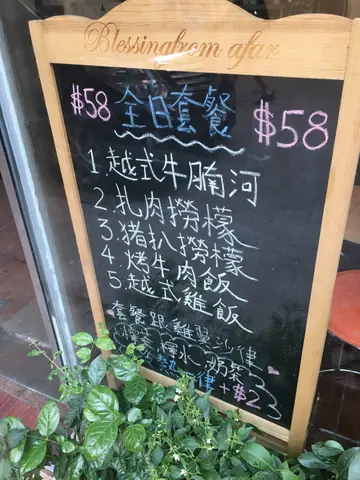 Blessing from afar
$58 全日套餐 $58
1.越式牛腩河
2.扎肉撈檬
3.猪扒撈檬
4.烤牛肉飯
5.越式雞飯
套餐跟雞翼沙律
檸水 奶茶
+$2